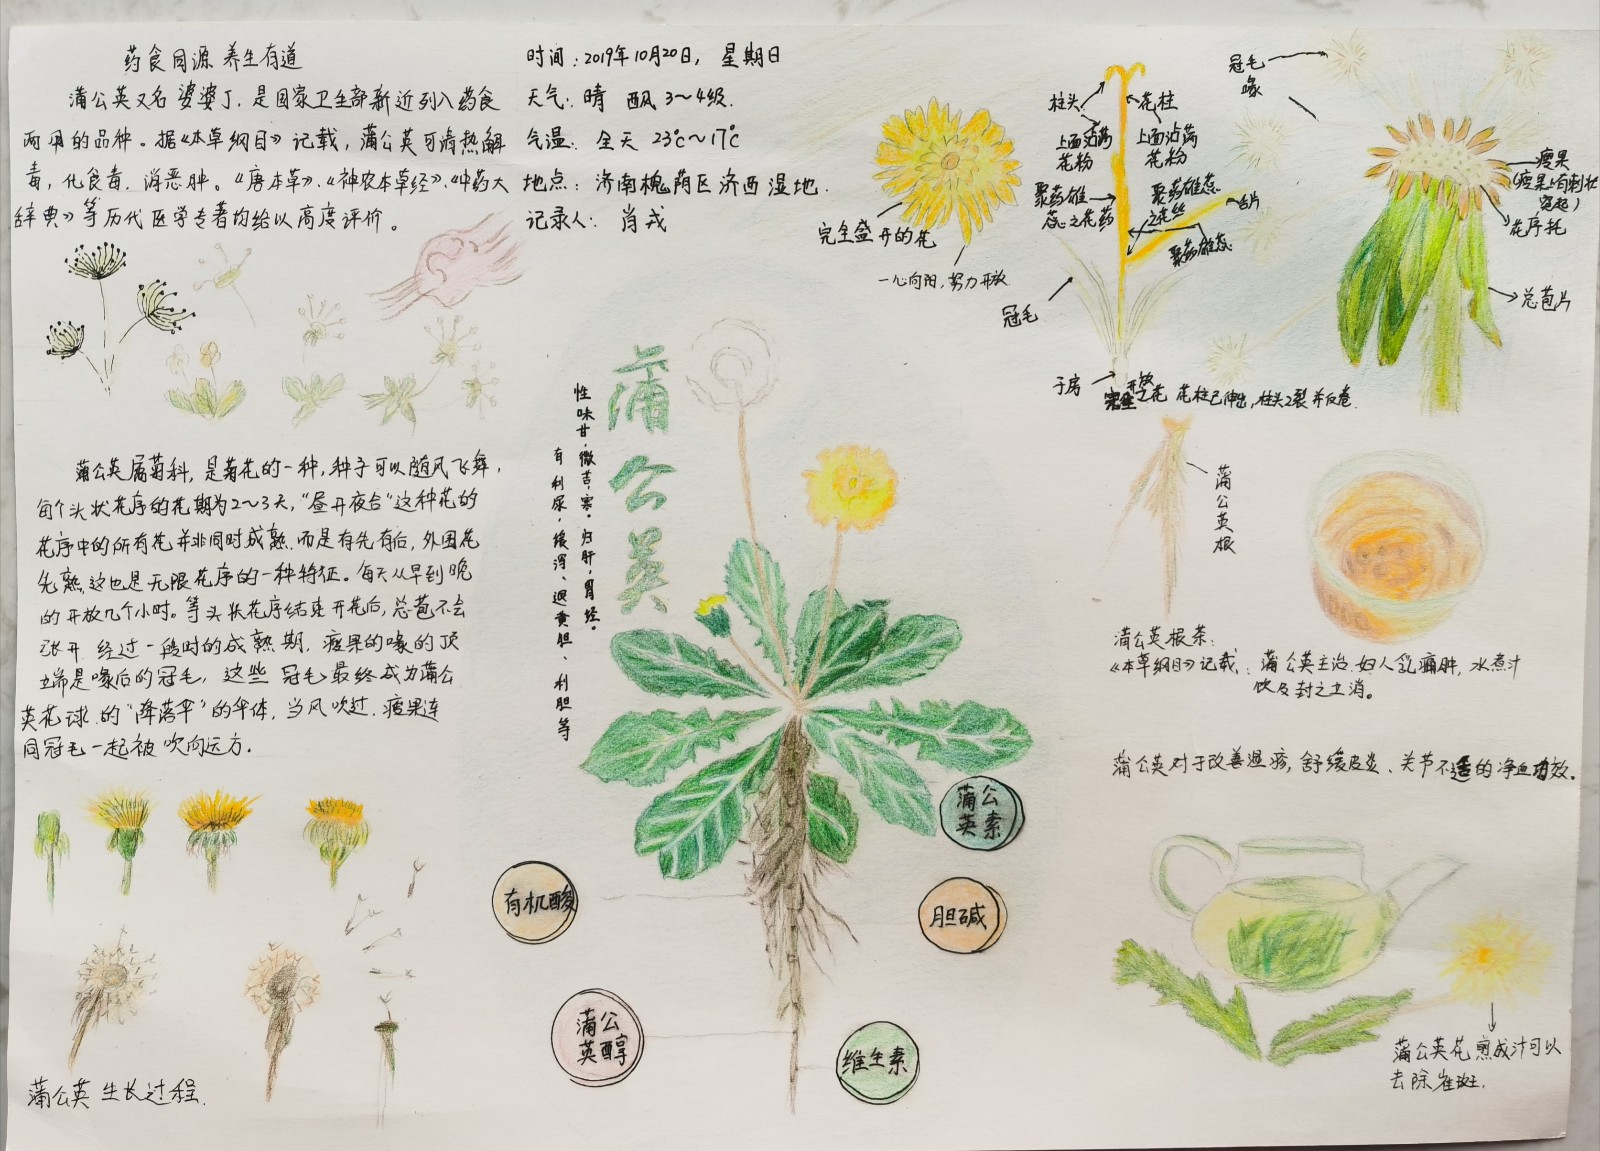 药食同源 养生有道
蒲公英又名婆婆丁，是国家卫生部新近列入药食
两用的品种。据《本草纲目》记载，蒲公英可清热解
毒，化食毒，消恶肿。《唐本草》、《神农本草经》、《中药大
辞典》等历代医学专著均给以高度评价。
时间：2019年10月20日，星期日
天气：晴 西风3～4级.
气温：全天 23℃～17℃
地点：济南槐荫区济西湿地.
记录人：肖戎
完全盛开的花
一心向阳，努力开放
柱头
上面沾满
花粉
聚药雄
蕊之花药
冠毛
子房
花柱
上面沾满
花粉
聚药雄蕊
之花丝
舌片
聚药雄蕊
完全开放之花 花柱已伸出，柱头2裂并反卷.
冠毛
喙
瘦果
(瘦果上有刺状
突起)
花序托
总苞片
蒲公英
性味甘，微苦，寒。归肝，胃经。
有利尿，缓泻、退黄胆、利胆等
蒲公英属菊科，是菊花的一种，种子可以随风飞舞，
每个头状花序的花期为2～3天，"昼开夜合"这种花的
花序中的所有花并非同时成熟，而是有先有后，外围花
先熟，这也是无限花序的一种特征。每天从早到晚
的开放几个小时。等头状花序结束开花后，总苞不会
张开 经过一段时的成熟期，瘦果的喙的顶
端是喙后的冠毛，这些冠毛最终成为蒲公
英花球的"降落伞"的伞体，当风吹过，瘦果连
同冠毛一起被吹向远方.
蒲公英生长过程.
蒲公英根
蒲公英根茶：
《本草纲目》记载：蒲公英主治妇人乳痈肿，水煮汁
饮及封之立消。
蒲公英对于改善湿疹，舒缓皮炎、关节不适的净血功效.
蒲公英素
有机酸
胆碱
蒲公英醇
维生素
蒲公英花煎成汁可以
去除雀斑.